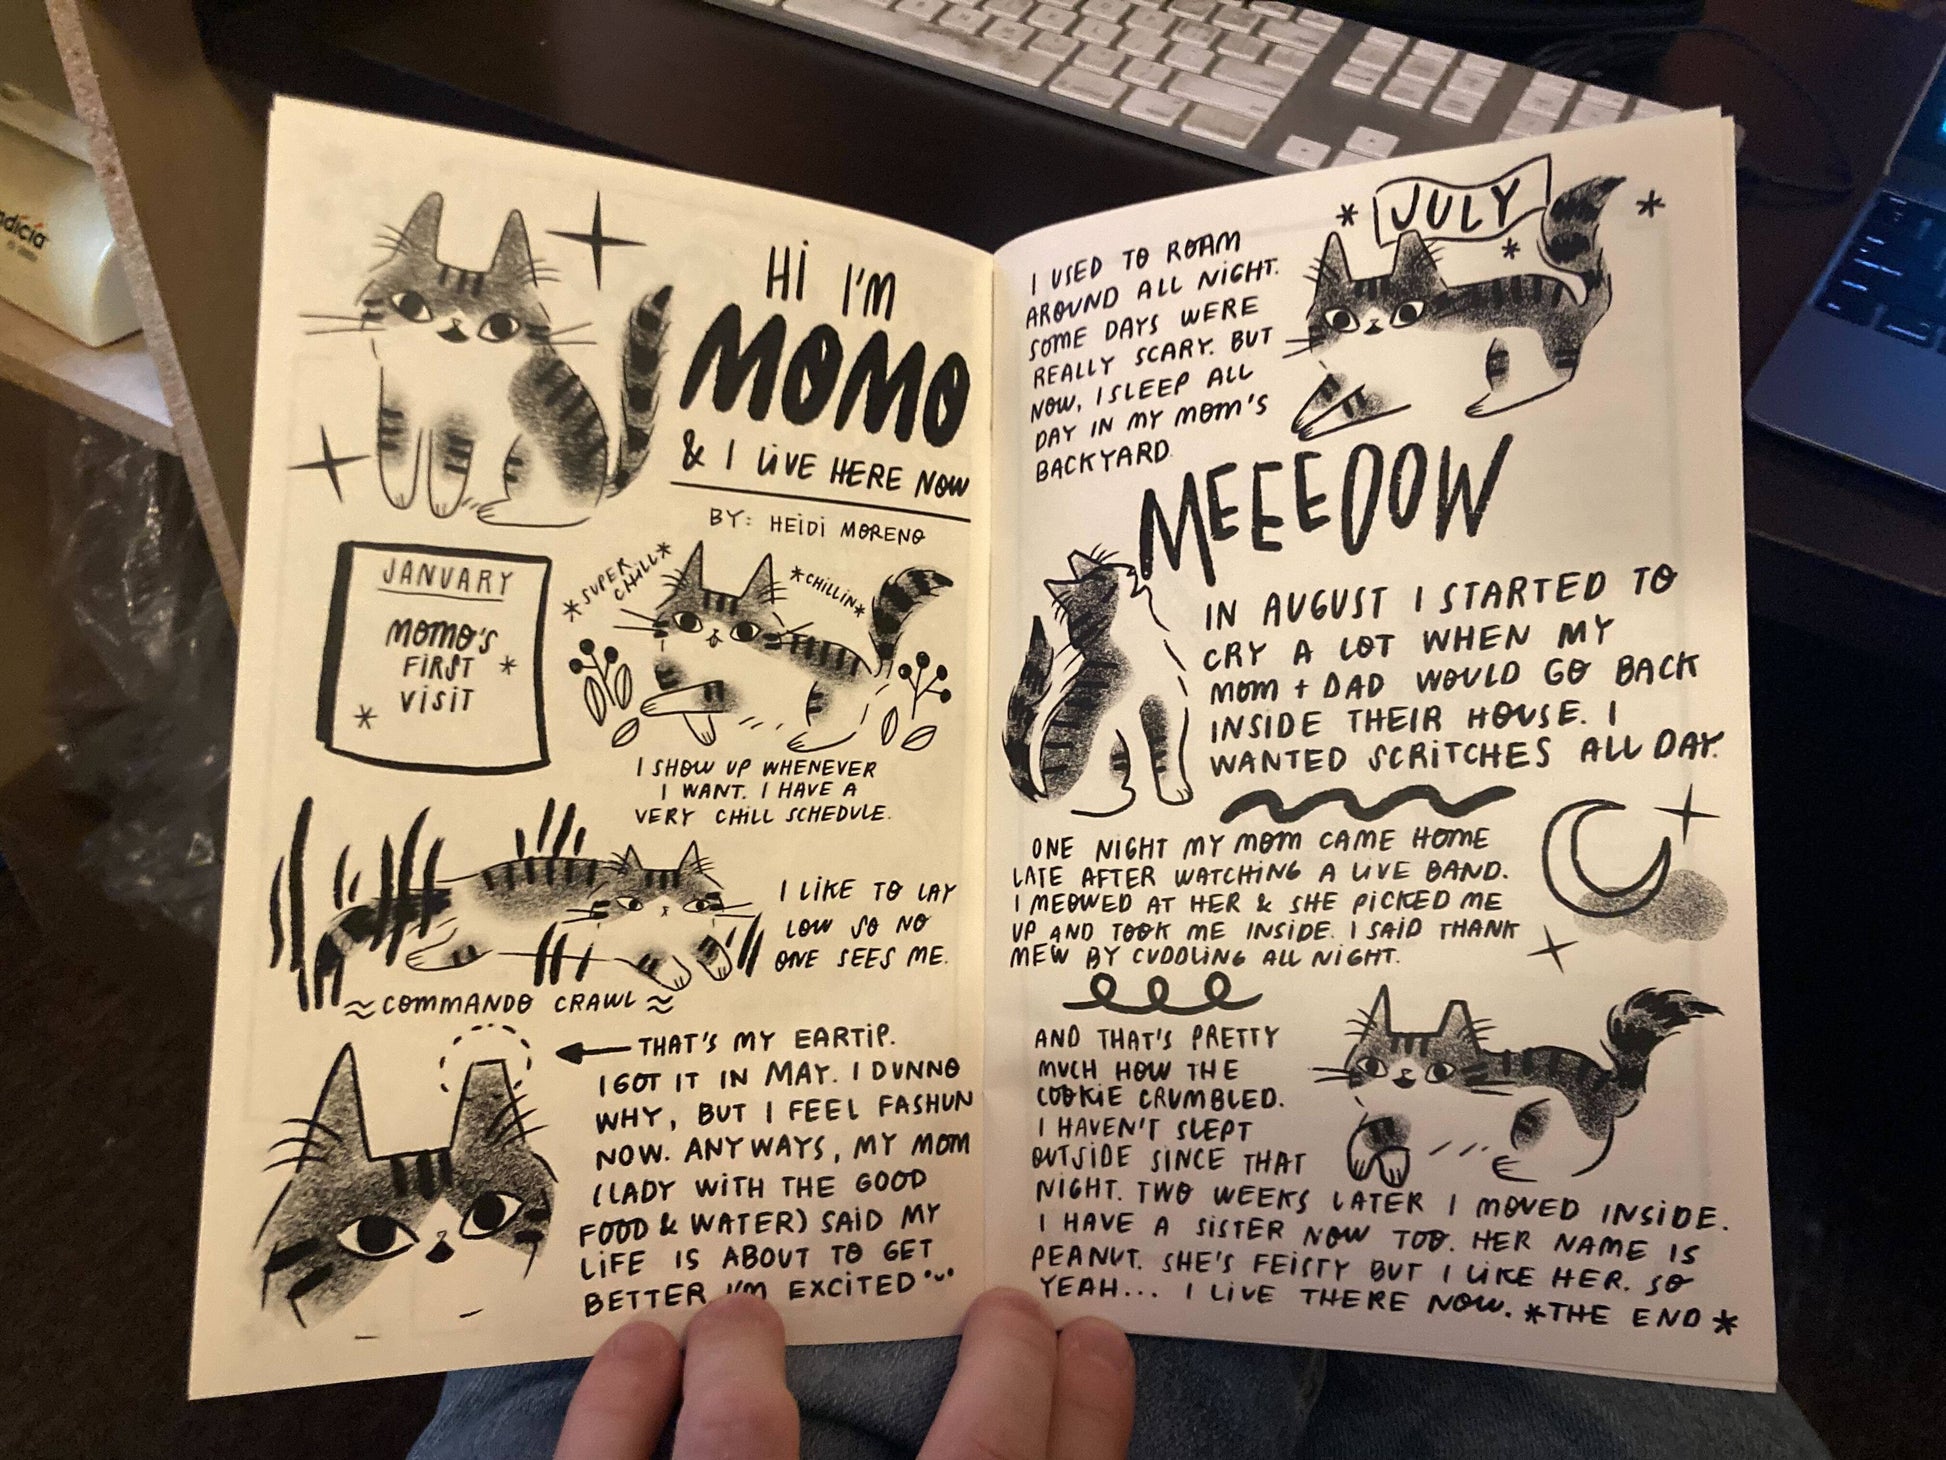 Hi I'M
MOMO
& I LIVE HERE NOW
BY: HEIDI MORENO
JANUARY
MOMO'S
FIRST
VISIT
*SUPER
CHILL*
*CHILLIN*
I SHOW UP WHENEVER
I WANT. I HAVE A
VERY CHILL SCHEDULE.
I LIKE TO LAY
LOW SO NO
ONE SEES ME.
≈COMMANDO CRAWL≈
THAT'S MY EARTIP.
I GOT IT IN MAY. I DUNNO
WHY, BUT I FEEL FASHUN
NOW. ANYWAYS, MY MOM
(LADY WITH THE GOOD
FOOD & WATER) SAID MY
LIFE IS ABOUT TO GET
BETTER I'M EXCITED
JULY
I USED TO ROAM
AROUND ALL NIGHT.
SOME DAYS WERE
REALLY SCARY. BUT
NOW, I SLEEP ALL
DAY IN MY MOM'S
BACKYARD.
MEEEOOW
IN AUGUST I STARTED TO
CRY A LOT WHEN MY
MOM + DAD WOULD GO BACK
INSIDE THEIR HOUSE. I
WANTED SCRITCHES ALL DAY.
ONE NIGHT MY MOM CAME HOME
LATE AFTER WATCHING A LIVE BAND.
I MEOWED AT HER & SHE PICKED ME
UP AND TOOK ME INSIDE. I SAID THANK
MEW BY CUDDLING ALL NIGHT.
AND THAT'S PRETTY
MUCH HOW THE
COOKIE CRUMBLED.
I HAVEN'T SLEPT
OUTSIDE SINCE THAT
NIGHT. TWO WEEKS LATER I MOVED INSIDE.
I HAVE A SISTER NOW TOO. HER NAME IS
PEANUT. SHE'S FEISTY BUT I LIKE HER. SO
YEAH... I LIVE THERE NOW. *THE END*